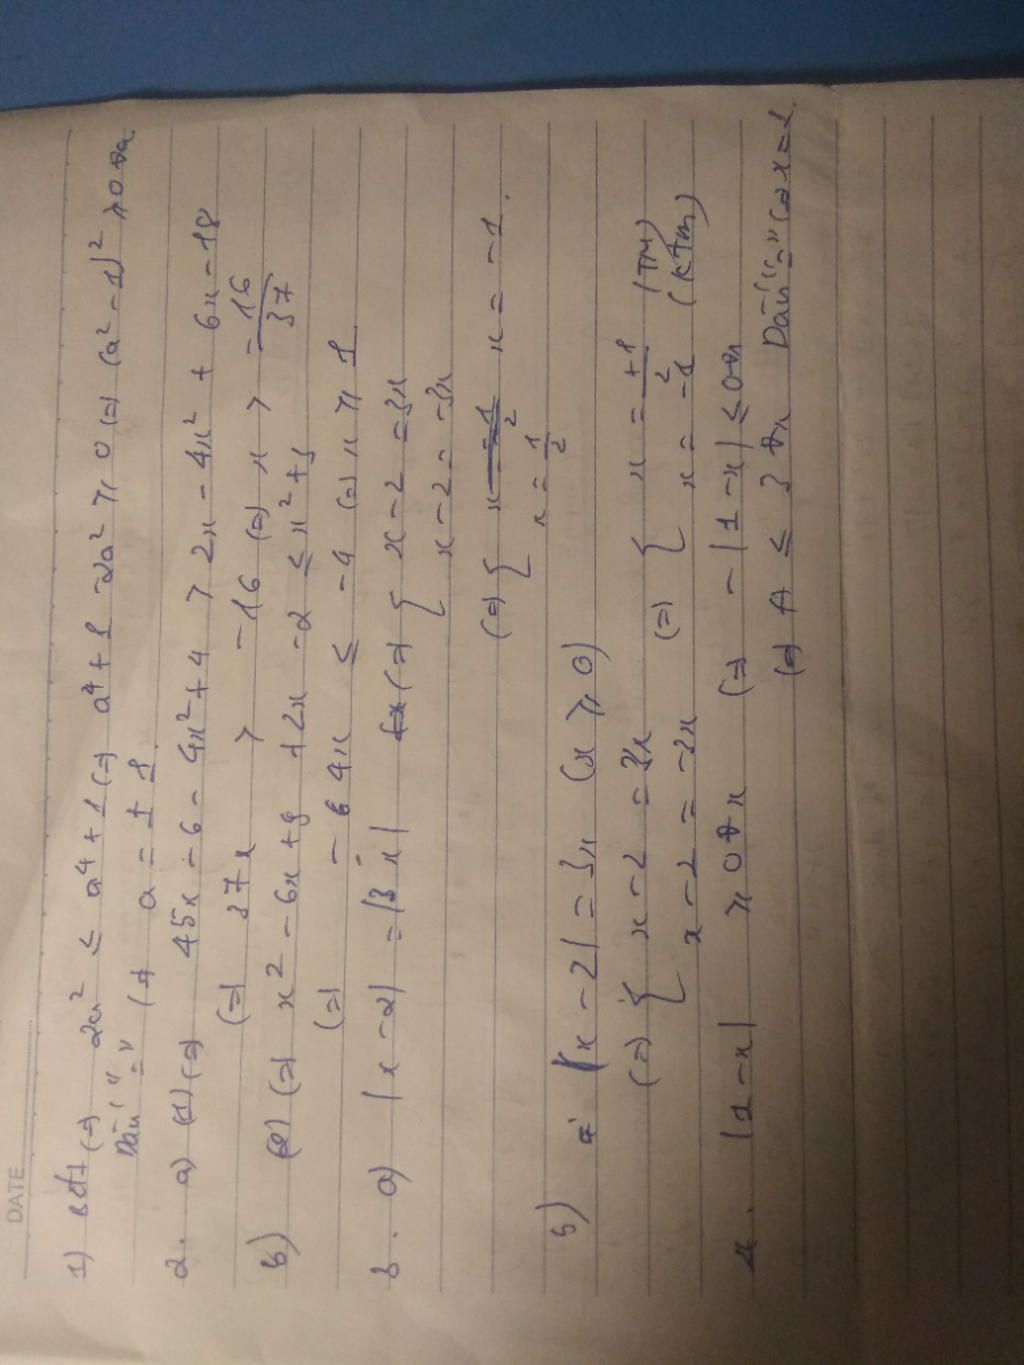 DATE
1) BĐT (=) 2a² ≤ a⁴ + 1 (=) a⁴ + 1 - 2a² ≥ 0 (=) (a² - 1)² ≥ 0 ∀a
Dấu "=" (=) a = ± 1
2. a) (1) (=) 45x - 6 - 4x² + 4 > 2x - 4x² + 6x - 18
(=) 37x > -16 (=) x > -16/37
b) (2) (=) x² - 6x + 9 + 2x - 2 ≤ x² + 3
(=) -4x ≤ -4 (=) x ≥ 1
3. a) |x - 2| = |3x| (=) { x - 2 = 3x
x - 2 = -3x
(=) { x = -1
x = 1/2
b) |x - 2| = 3x (x ≥ 0)
(=) { x - 2 = 3x (=) { x = +1/2 (TM)
x - 2 = -3x x = -1 (KTM)
4. |1 - x| ≥ 0 ∀x (=) -|1 - x| ≤ 0 ∀x
(=) A ≤ 3 ∀x Dấu "=" (=) x = 1.